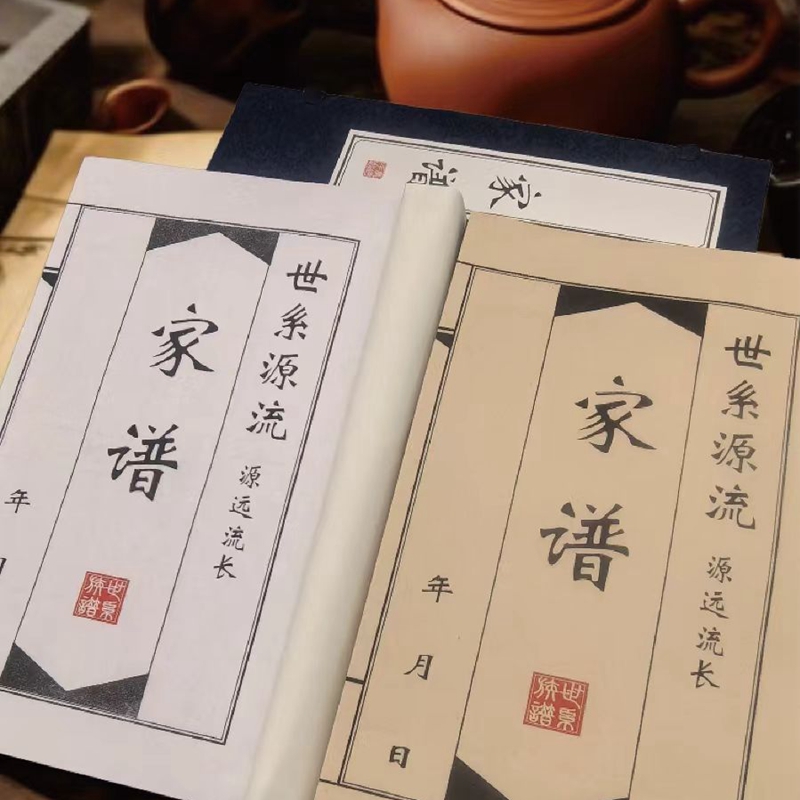 家譜
世系源流
源远流长
家谱
世系族譜
年
世系源流
源远流长
家谱
世系族譜
年月日